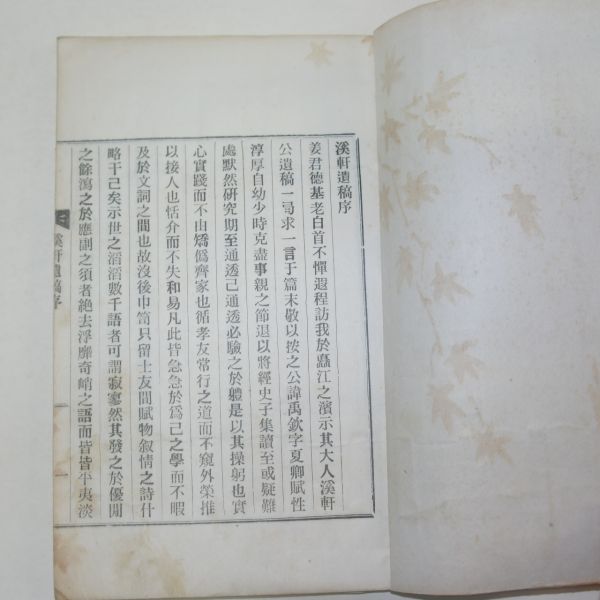 溪軒遺稿序
姜君德基老白首不憚遐程訪我於蠡江之濱示其大人溪軒
公遺稿一呇求一言于篇末敬以按之公諱禹欽字夏卿賦性
淳厚自幼少時克盡事親之節退以將經史子集讀至或疑難
處默然研究期至通透已通透必驗之於軆是以其操躬也實
心實踐而不由矯僞齊家也循孝友常行之道而不窺外榮推
以接人也恬介而不失和易凡此皆急急於爲己之學而不暇
及於文詞之間也故沒後巾笥只留士友間賦物叙情之詩什
略干已矣示世之滔滔數千語者可謂寂寥然其發之於優閒
之餘瀉之於應副之須者絶去浮靡奇峭之語而皆皆平夷淡
溪軒遺稿序
一